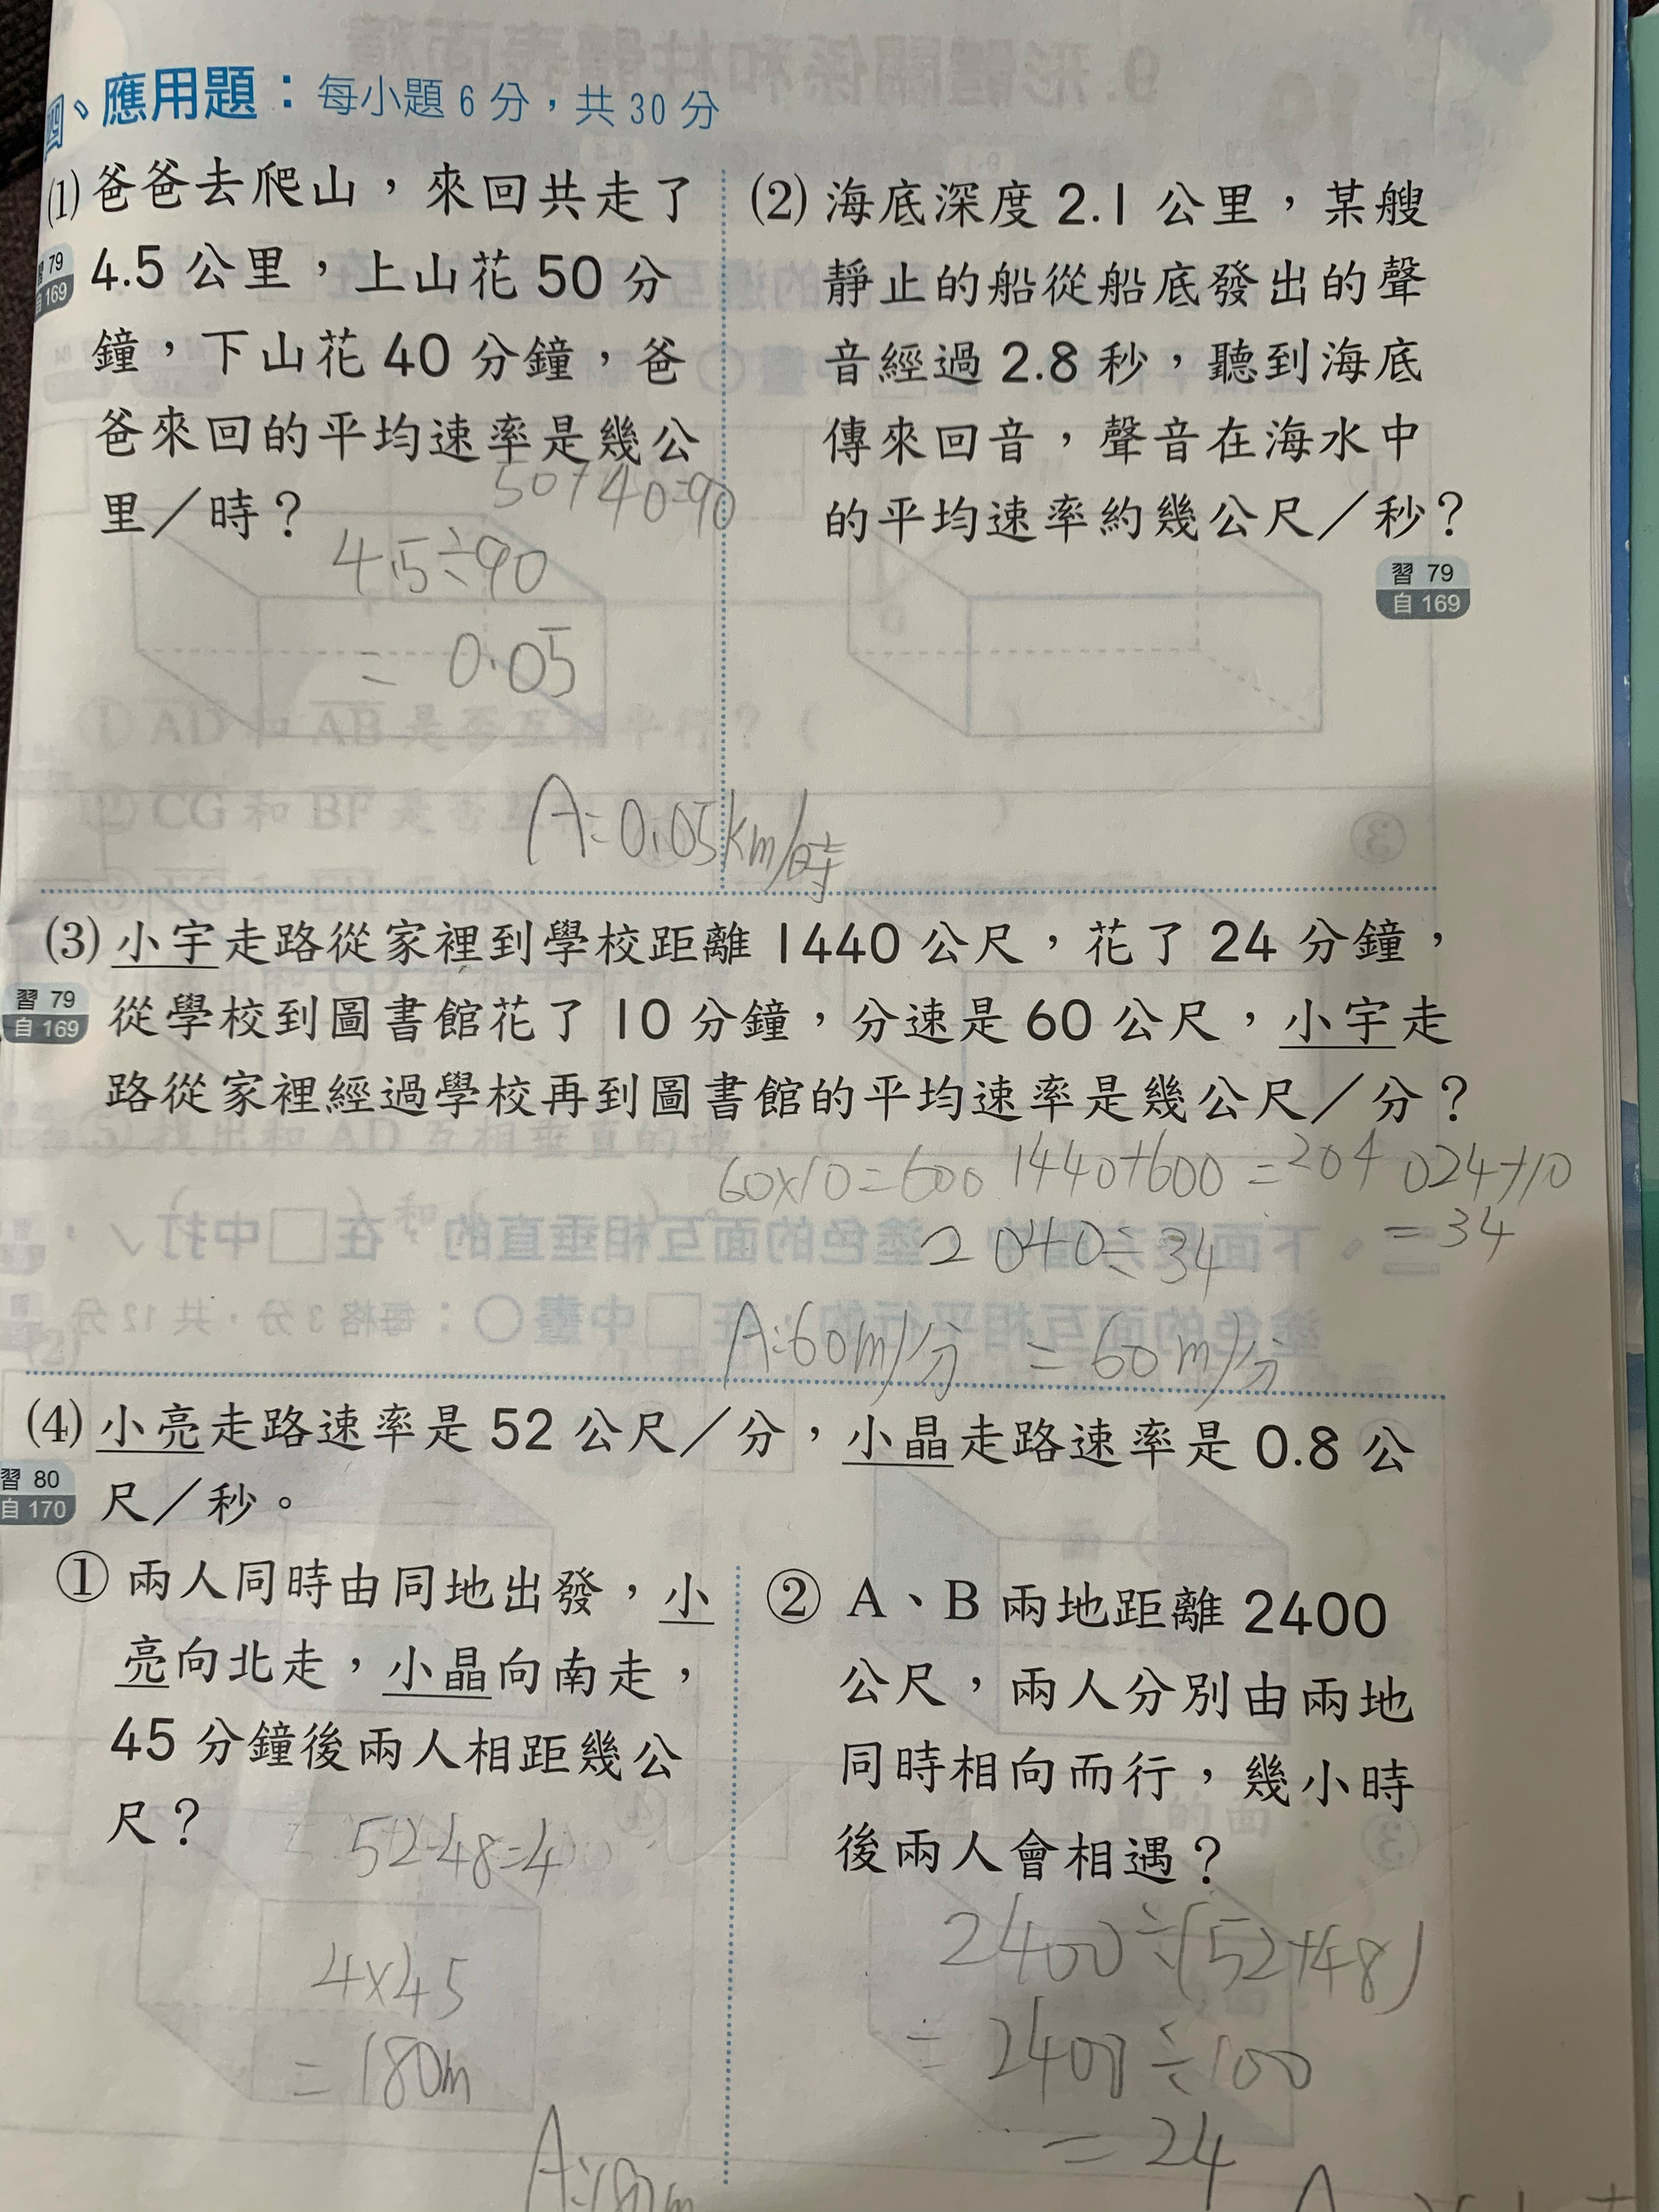 四、應用題：每小題 6 分，共 30 分
(1) 爸爸去爬山，來回共走了
習 79
自 169
4.5 公里，上山花 50 分
鐘，下山花 40 分鐘，爸
爸來回的平均速率是幾公
里／時？
50+40=90
4.5÷90
= 0.05
A:0.05km/時
(2) 海底深度 2.1 公里，某艘
靜止的船從船底發出的聲
音經過 2.8 秒，聽到海底
傳來回音，聲音在海水中
的平均速率約幾公尺／秒？
習 79
自 169
(3) 小宇走路從家裡到學校距離 1440 公尺，花了 24 分鐘，
習 79
自 169
從學校到圖書館花了 10 分鐘，分速是 60 公尺，小宇走
路從家裡經過學校再到圖書館的平均速率是幾公尺／分？
60×10=600 1440+600=2040 24+10
2040÷34 =34
A:60m/分 =60m/分
(4) 小亮走路速率是 52 公尺／分，小晶走路速率是 0.8 公
習 80
自 170
尺／秒。
① 兩人同時由同地出發，小
亮向北走，小晶向南走，
45 分鐘後兩人相距幾公
尺？
52-48=4
4×45
=180m
A:180m
② A、B 兩地距離 2400
公尺，兩人分別由兩地
同時相向而行，幾小時
後兩人會相遇？
2400÷(52+48)
= 2400÷100
= 24